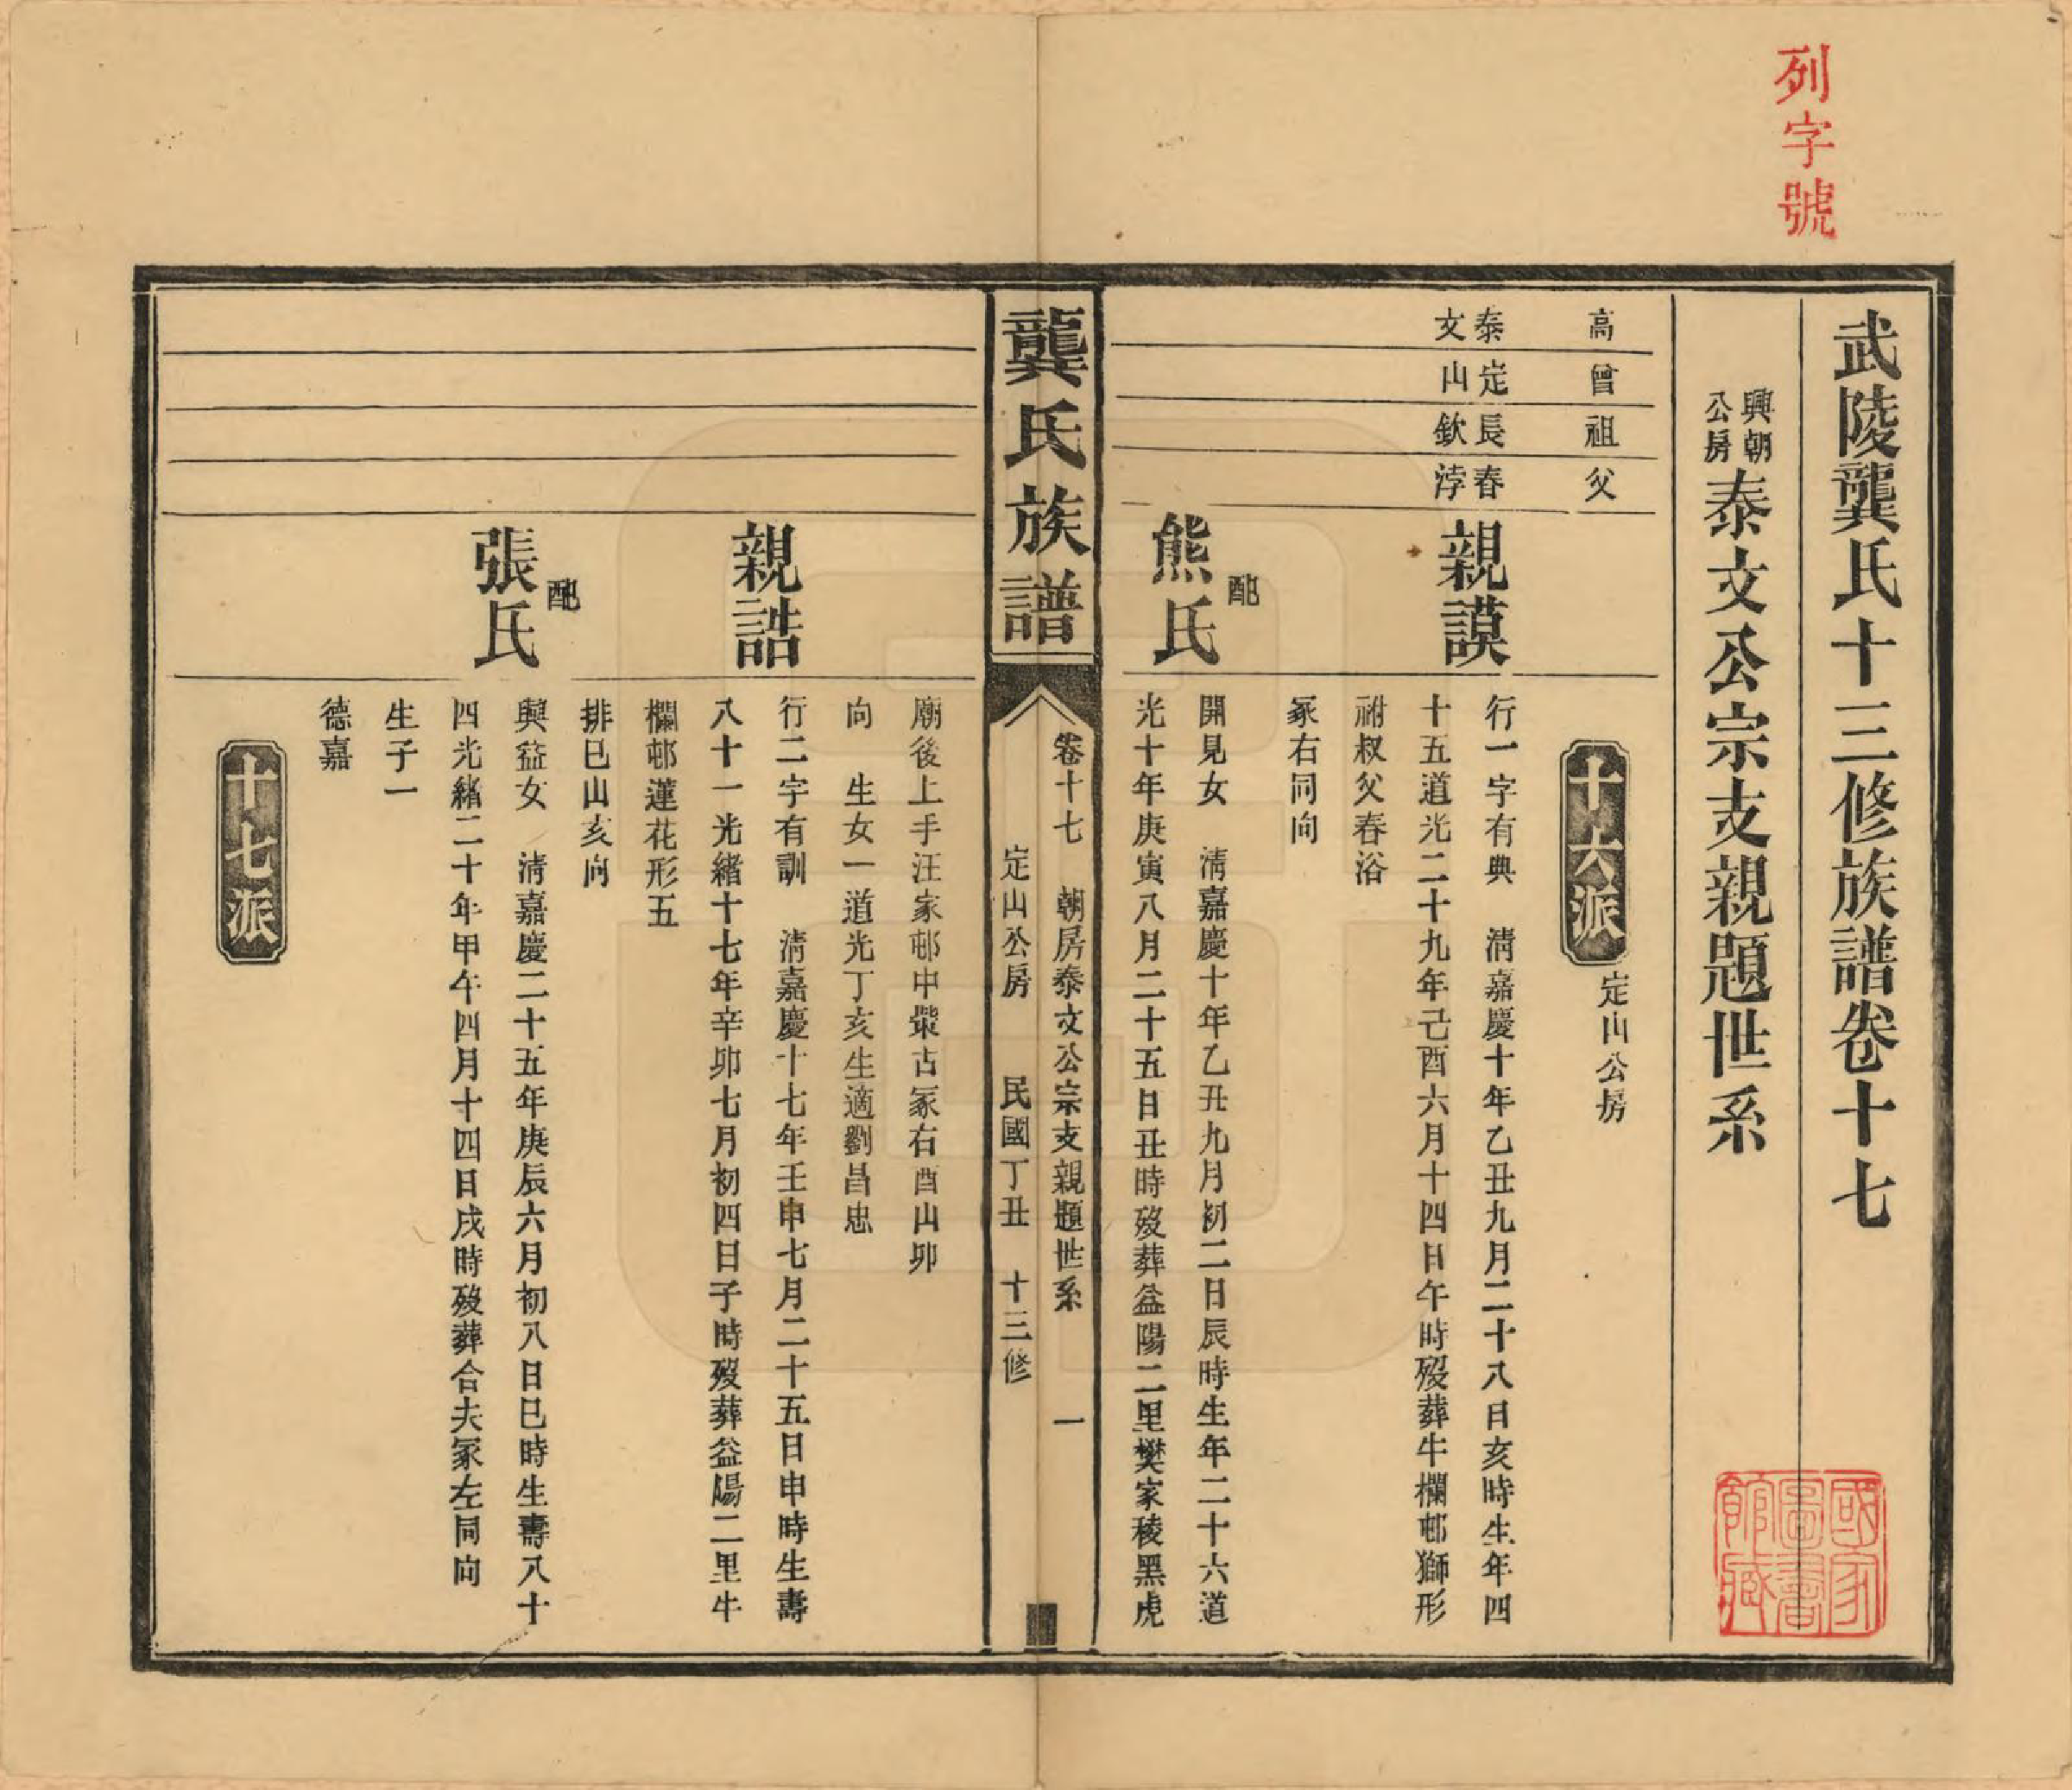 列字號
武陵龔氏十三修族譜卷十七
興朝公房泰文公宗支親題世系
高 曾 祖 父
十六派 定山公房
泰文
定山
長欽
春浡
親謨
行一字有典 清嘉慶十年乙丑九月二十八日亥時生年四
十五道光二十九年己酉六月十四日午時歿葬牛欄邨獅形
祔叔父春浴
冢右同向
配熊氏
開見女 清嘉慶十年乙丑九月初二日辰時生年二十六道
光十年庚寅八月二十五日丑時歿葬益陽二里樊家稜黑虎
龔氏族譜
卷十七 朝房泰文公宗支親題世系 一
定山公房 民國丁丑 十三修
廟後上手汪家邨中欒古冢右酉山卯
向 生女一道光丁亥生適劉昌忠
親誥
行二字有訓 清嘉慶十七年壬申七月二十五日申時生壽
八十一光緒十七年辛卯七月初四日子時歿葬益陽二里牛
欄邨蓮花形五
排巳山亥向
配張氏
興益女 清嘉慶二十五年庚辰六月初八日巳時生壽八十
四光緒二十年甲午四月十四日戌時歿葬合夫冢左同向
生子一
德嘉
十七派
國家圖書館藏